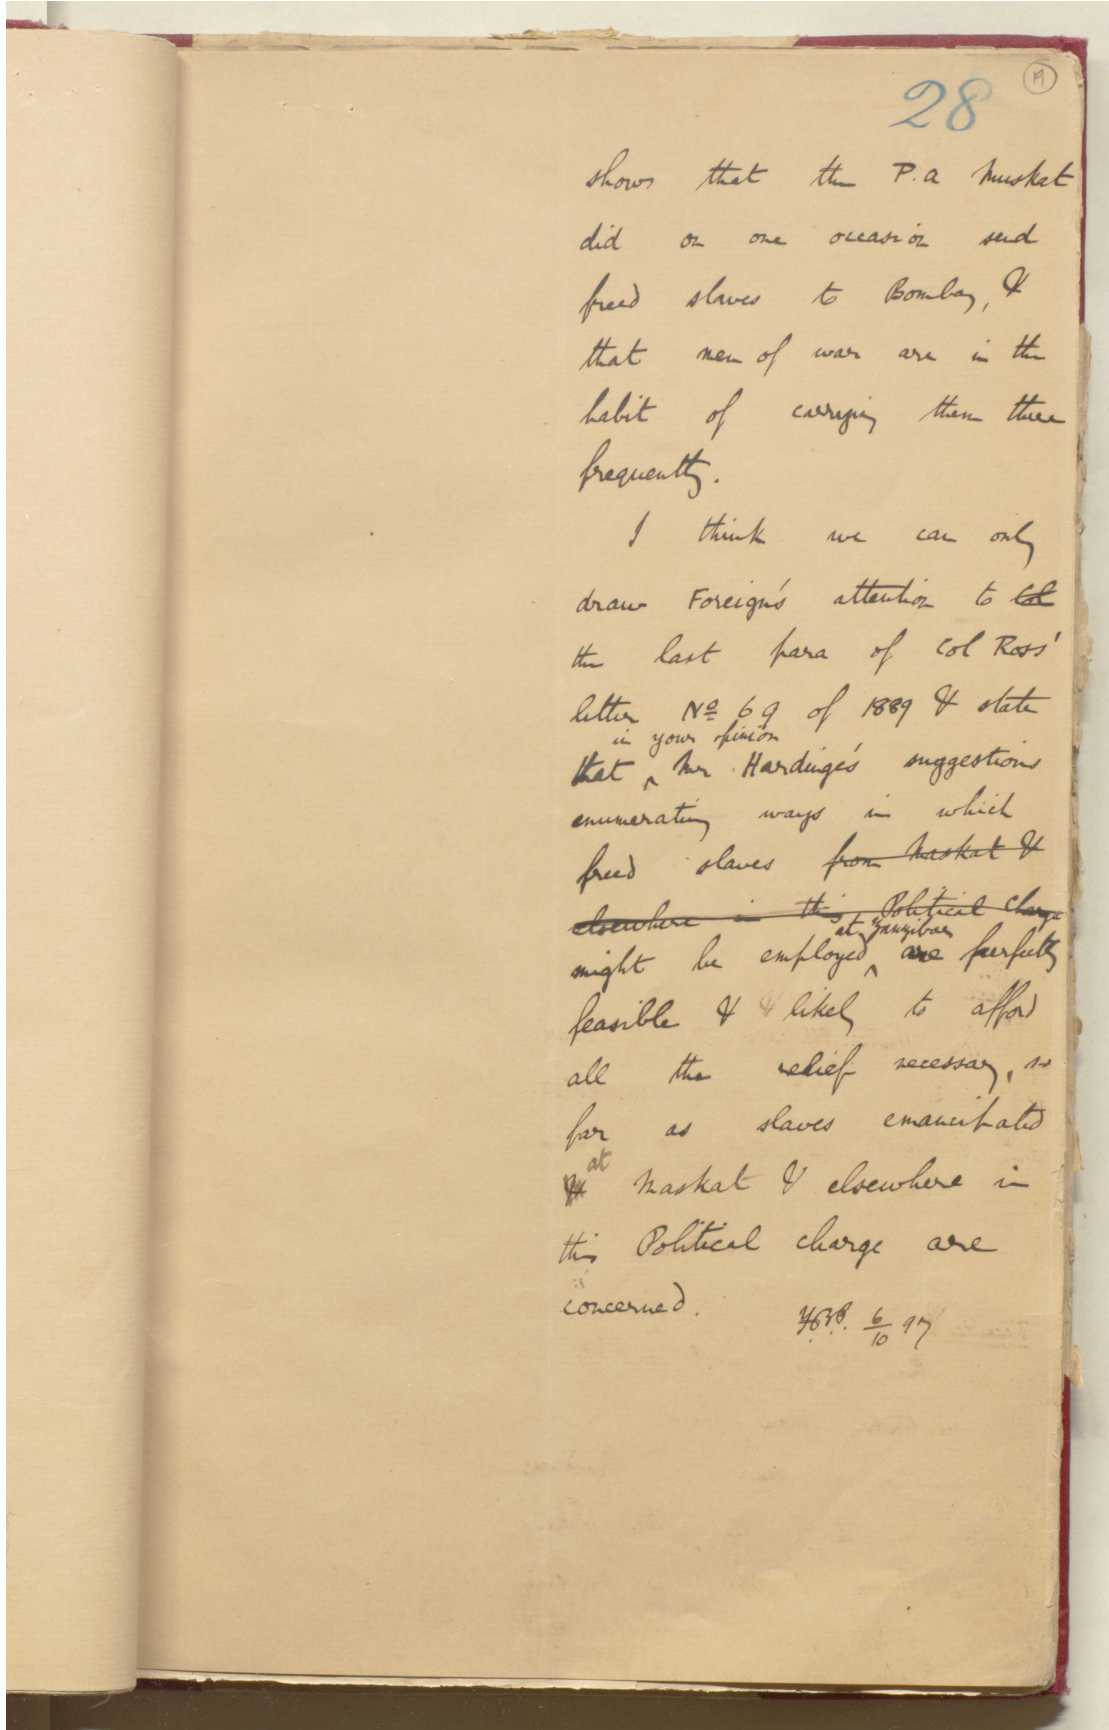 28
19
shows that the P.A Muskat
did on one occasion send
freed slaves to Bombay, &
that men of war are in the
habit of carrying them there
frequently.
I think we can only
draw Foreign's attention to Col
the last para of Col Ross'
letter No 69 of 1889 & state
in your opinion
that ^ Mr Hardinge's suggestions
enumerating ways in which
freed slaves from Maskat &
elsewhere in this Political charge
at Zanzibar
might be employed ^ are perfectly
feasible & likely to afford
all the relief necessary, so
far as slaves emancipated
at
Maskat & elsewhere in
this Political charge are
concerned.
6/10 97